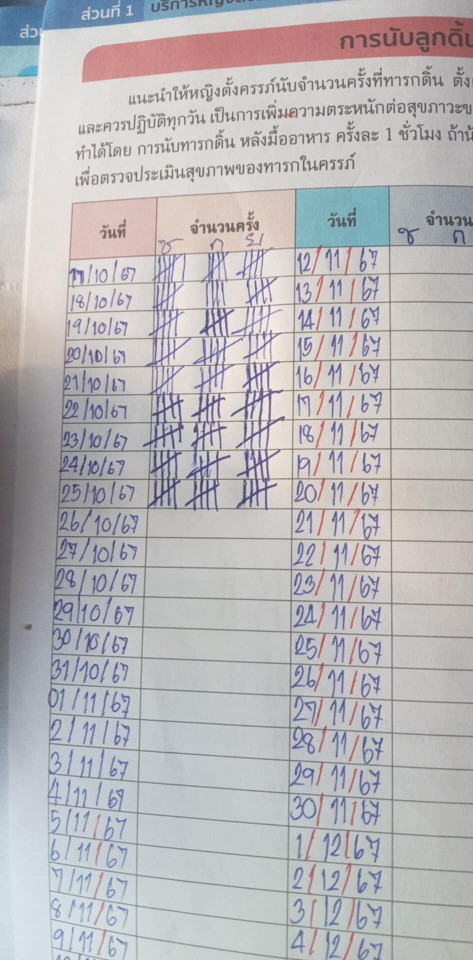 ส่วนที่ 1
การนับลูกดิ้น
แนะนำให้หญิงตั้งครรภ์นับจำนวนครั้งที่ทารกดิ้น
และควรปฏิบัติทุกวัน เป็นการเพิ่มความตระหนักต่อสุขภาวะ
ทำได้โดย การนับทารกดิ้น หลังมื้ออาหาร ครั้งละ 1 ชั่วโมง
เพื่อตรวจประเมินสุขภาพของทารกในครรภ์
วันที่ จำนวนครั้ง วันที่ จำนวน
ช ก ย ช ก
17/10/67 12/11/67
18/10/67 13/11/67
19/10/67 14/11/67
20/10/67 15/11/67
21/10/67 16/11/67
22/10/67 17/11/67
23/10/67 18/11/67
24/10/67 19/11/67
25/10/67 20/11/67
26/10/67 21/11/67
27/10/67 22/11/67
28/10/67 23/11/67
29/10/67 24/11/67
30/10/67 25/11/67
31/10/67 26/11/67
01/11/67 27/11/67
2/11/67 28/11/67
3/11/67 29/11/67
4/11/67 30/11/67
5/11/67 1/12/67
6/11/67 2/12/67
7/11/67 3/12/67
8/11/67 4/12/67
9/11/67